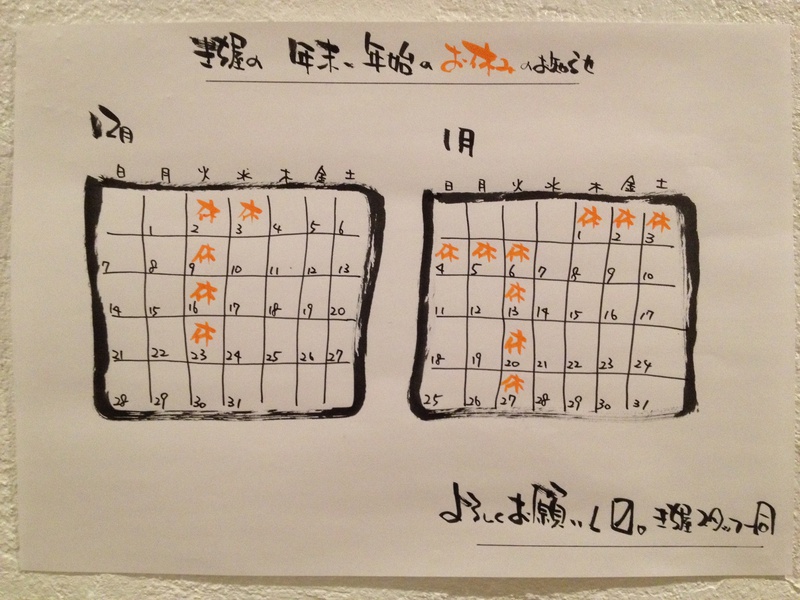 きち屋の 年末、年始のお休みのお知らせ
12月
日 月 火 水 木 金 土
休 休
1 2 3 4 5 6
休
7 8 9 10 11 12 13
休
14 15 16 17 18 19 20
休
21 22 23 24 25 26 27
28 29 30 31
1月
日 月 火 水 木 金 土
休 休 休
1 2 3
休 休 休
4 5 6 7 8 9 10
休
11 12 13 14 15 16 17
休
18 19 20 21 22 23 24
休
25 26 27 28 29 30 31
よろしくお願いし〼。きち屋スタッフ一同